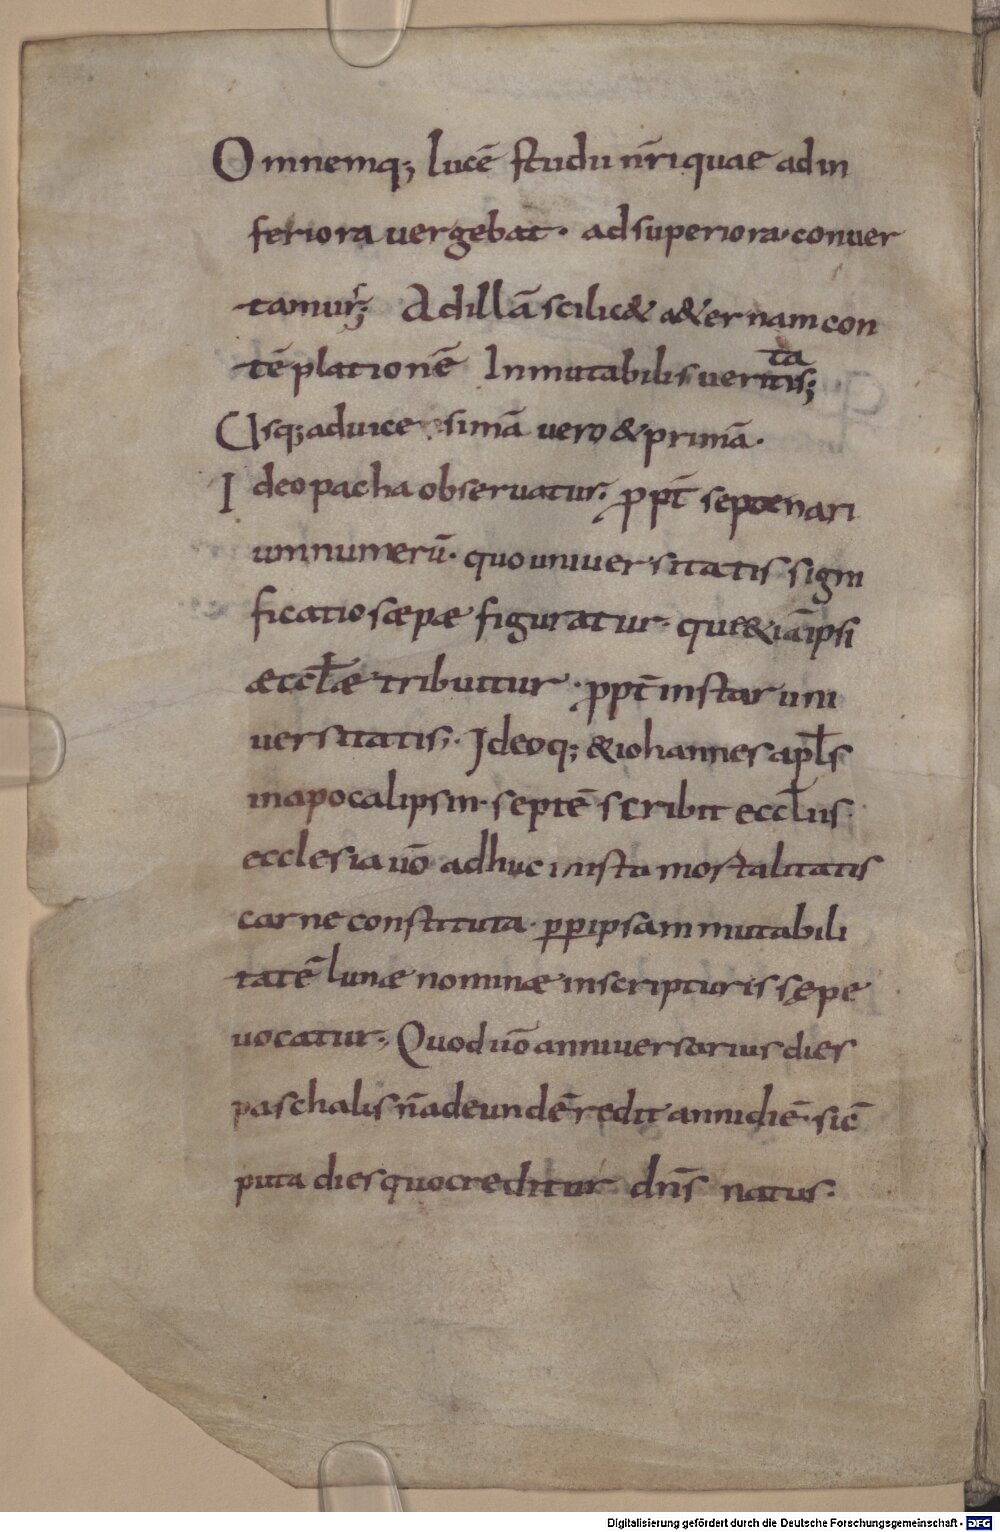 Omnemq; lucē studu nr̄i quae ad in
feriora uergebat · ad superiora · conuer
tamur; Ad illā scilic& a&ernam con
tēplationē Inmutabilis ueritatis;
Usq; ad uicesimā uero & primā ·
Ideo pacha obseruatur · ꝓpt̄ septenari
um numerū · quo uniuersitatis signi
ficatio sæpæ figuratur · que &iā ipsi
æccl̄æ tribuitur · ꝓpt̄ instar uni
uersitatis; · Ideoq; & iohannes apl̄s
in apocalipsin · septē scribit eccl̄iis ·
ecclesia uō adhuc in ista mortalitatis
carne constituta · ꝑ ꝑ ipsam mutabili
tatē lunæ nominæ in scripturis sępe
uocatur · Quod uō anniuersarius dies
paschalis n̄ ad eundē redit anni diē · sic̄
puta dies quo creditur dn̄s natus ·
Digitalisierung gefördert durch die Deutsche Forschungsgemeinschaft - DFG